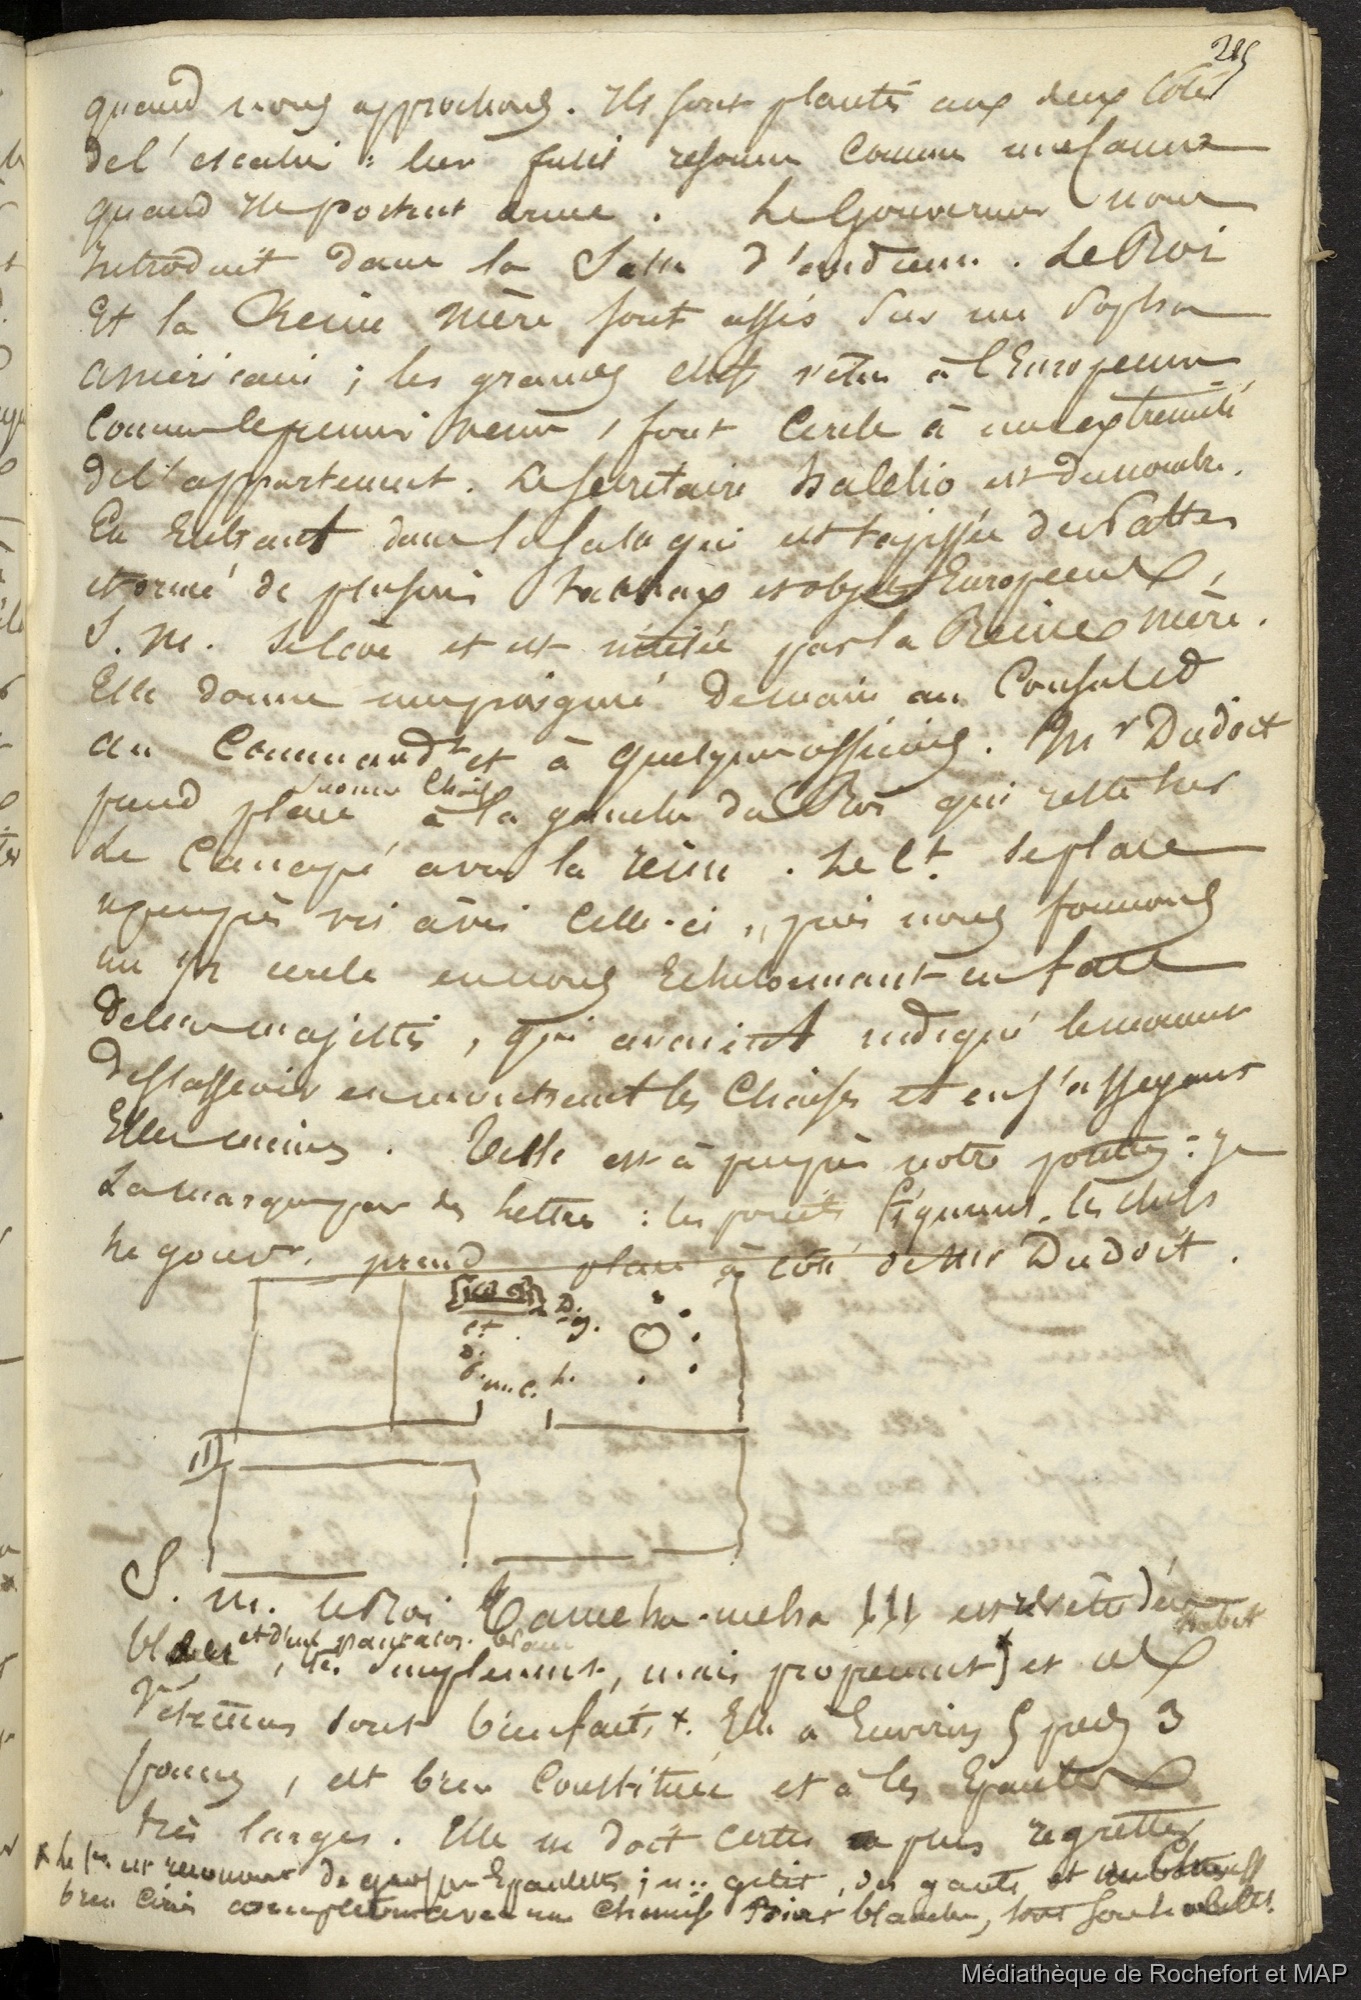 215
quand nous approchons. Ils sont plantés aux deux côtés
de l'escalier : leur fusil resonne comme une
quand ils portent arme. Le Gouverneur nous
introduit dans la Salle d'audience. Le Roi
Et la Reine mère sont assis sur un sopha
américain ; les grands chefs vêtus à l'Européenne
comme le premier venu, font cercle à une extremité
de l'appartement. Le secretaire halelio est du nombre.
En Entrant dans la salle qui est tapissée de Nattes
et orné de plusieurs tableaux et objets Européens,
S. M. se lève et est imitée par la Reine mère.
Elle donne une poignée de main au Consul et
au Command.t et à quelques officiers. Mr Dudoit
prend place à la gauche du Roi qui reste sur
le Canapé avec la reine. Le C.t se place
à peu près vis à vis celle-ci, puis nous formons
un cercle en nous Echelonnant en face
de leurs majestés, qui avaient indiqué le moment
de s'asseoir en montrant les Chaises et en s'asseyant
Elles mêmes. Telle est à peu près notre position : je
la marque par des lettres : les points figurent les chefs
Le gouvr. prend place à côté de Mr Dudoit.
D.
g.
et
m. c. h.
S. M. le Roi Tameha-meha III est revêtu d'un habit
bleu et d'un pantalon blanc, très simplement, mais proprement et ces
vêtemens sont bien faits +. Elle a Environ 5 pieds 3
pouces, est bien constituée et a les Epaules
très larges. Elle ne doit certes pas regretter
bien cirées complètent avec une chemise blanche, toute sa toilette.
Médiathèque de Rochefort et MAP